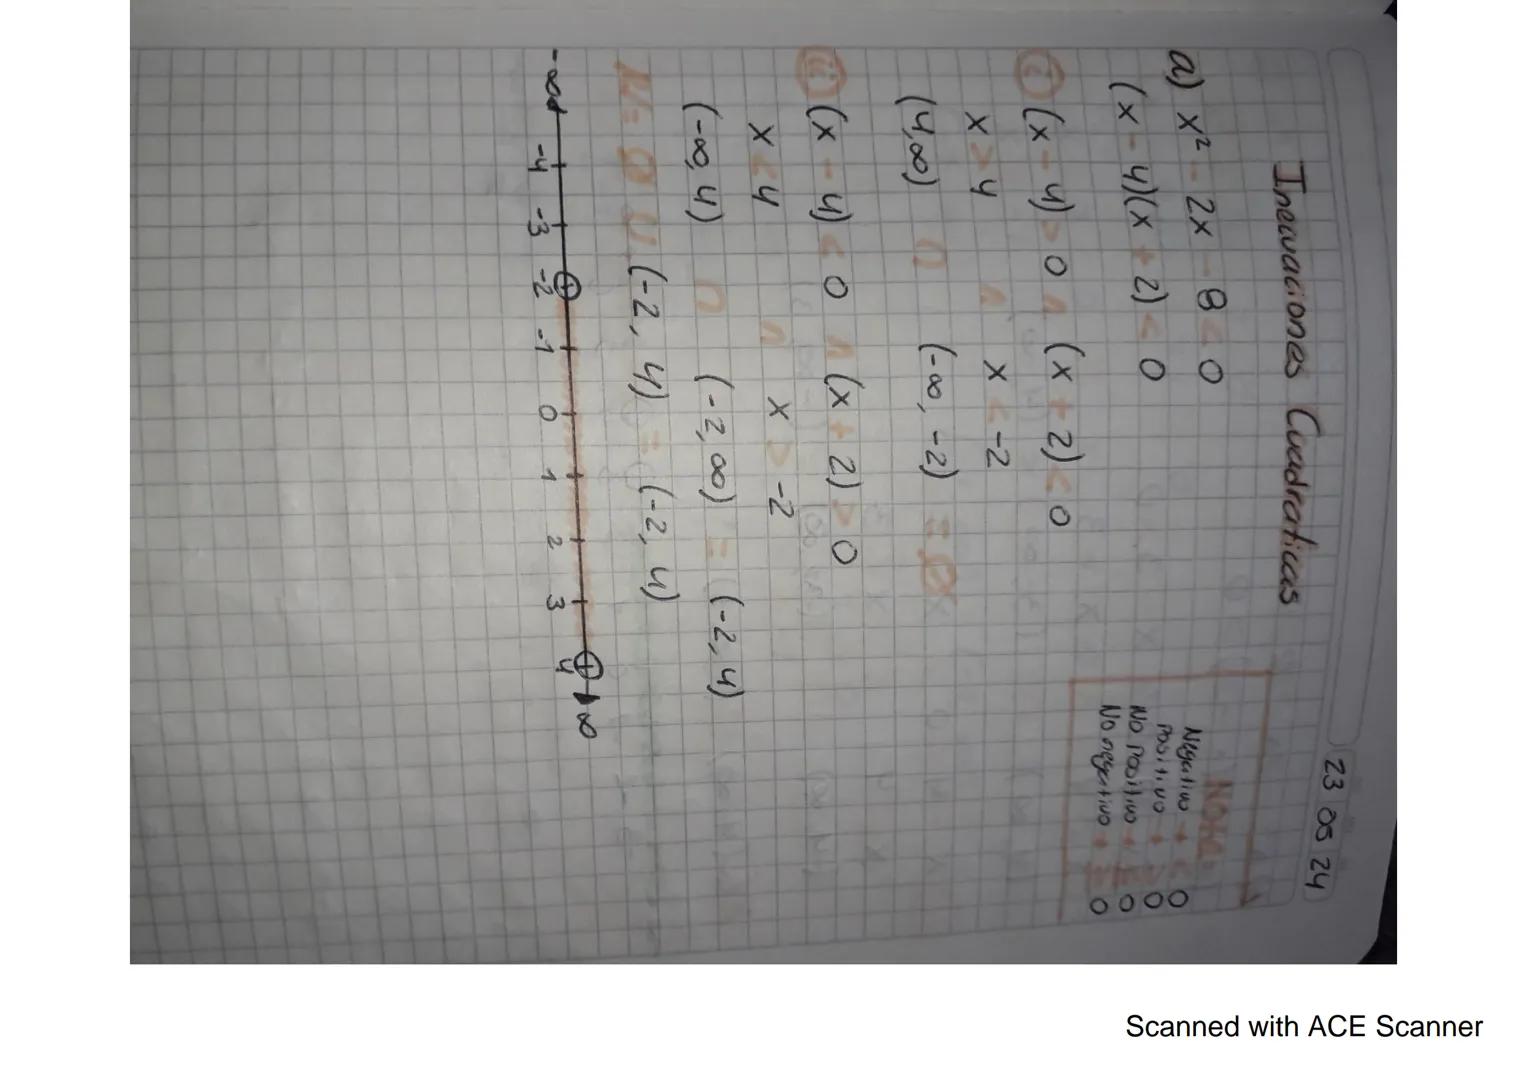 23 05 24
Inecuaciones Cuadraticas
Nota:
Negativo → < 0
Positivo → > 0
No positivo → ≤ 0
No negativo → ≥ 0
a) x² - 2x - 8 < 0
(x - 4)(x + 2) < 0
i) (x - 4) > 0 ∧ (x + 2) < 0
x > 4 ∧ x < -2
(4, ∞) ∩ (-∞, -2) = ∅
ii) (x - 4) < 0 ∧ (x + 2) > 0
x < 4 ∧ x > -2
(-∞, 4) ∩ (-2, ∞) = (-2, 4)
∅ U (-2, 4) = (-2, 4)
-∞ -4 -3 -2 -1 0 1 2 3 4 ∞
Scanned with ACE Scanner